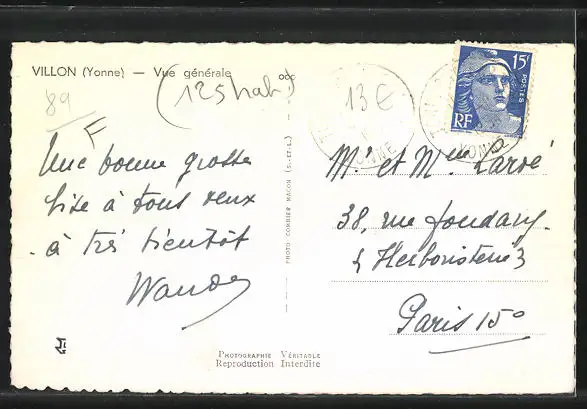 VILLON (Yonne) — Vue générale
89
(125 hab)
13 €
F
15F
POSTES
RF
YONNE
YONNE
Une bonne grosse
bise à tous deux
à très bientôt
Wanda
PHOTO COMBIER MACON (S.-ET-L.)
Mr et Mme Larvé
38, rue
( Herboristerie )
Paris 15°
PHOTOGRAPHIE VÉRITABLE
Reproduction Interdite